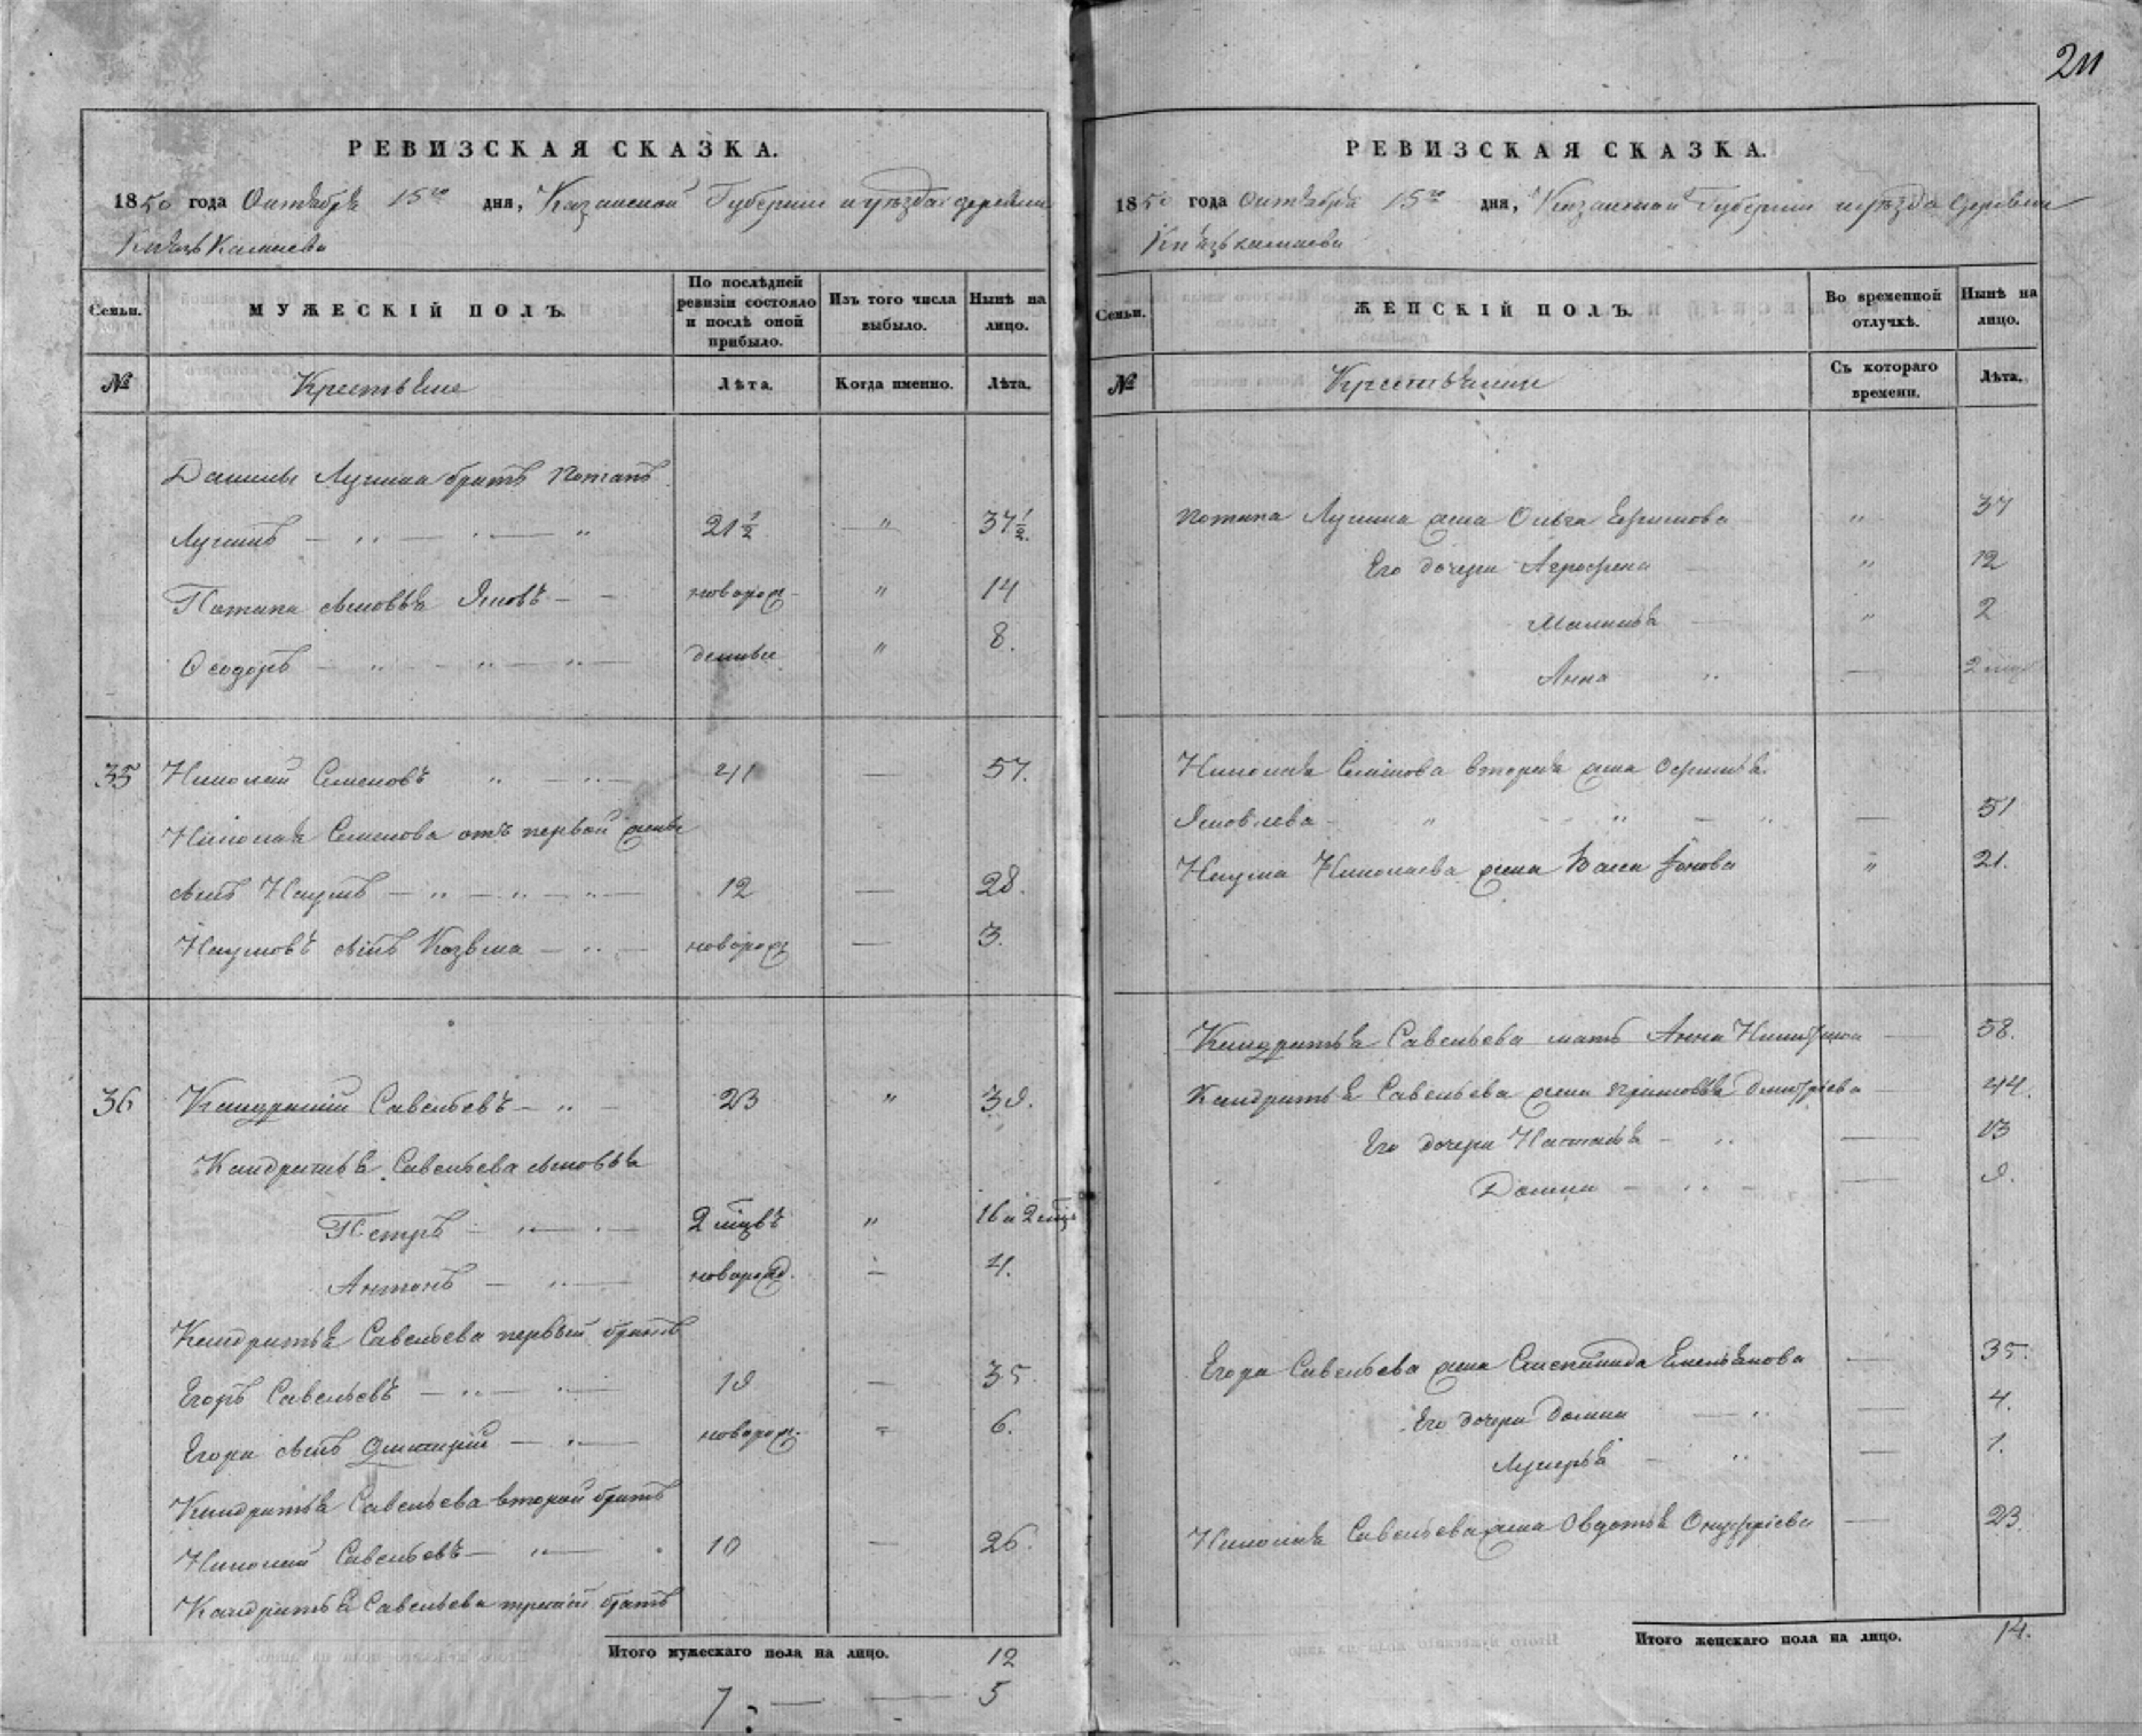 211
РЕВИЗСКАЯ СКАЗКА.
1850 года Октября 15го дня, Казанской Губернии и уѣзда деревни
Князь Камаева
Семьи. МУЖЕСКІЙ ПОЛЪ. По послѣдней ревизіи состояло и послѣ оной прибыло. Изъ того числа выбыло. Нынѣ на лицо.
№ Крестьяне Лѣта. Когда именно. Лѣта.
Данилы Лукина братъ Потапъ
Лукинъ — " — " — " 21½ " 37½.
Потапа сыновья Яковъ — — новорож- " 14
Ѳеодоръ — " — " — " — далѣе " 8.
35 Николай Семеновъ " — " — 41 — 57.
Николая Семенова отъ первой жены
сынъ Наумъ — " — " — " — 12 — 28.
Наумовъ сынъ Козьма — " — новорож — 3.
36 Кандратій Савельевъ — " — 23 " 39.
Кандратья Савельева сыновья
Петръ — " — " — 2 мѣцъ " 16 и 2 мѣц
Антонъ — " — новорожд. — 4.
Кандратья Савельева первый братъ
Егоръ Савельевъ — " — " — 19 — 35.
Егора сынъ Дмитрій — " — новорож. — 6.
Кандратья Савельева второй братъ
Николай Савельевъ — " — 10 — 26.
Кандратья Савельева третій братъ
Итого мужескаго пола на лицо. 12
7 : — — 5
РЕВИЗСКАЯ СКАЗКА.
1850 года Октября 15го дня, Казанской Губерніи и уѣзда Деревни
Князь камаева
Семьи. ЖЕНСКІЙ ПОЛЪ. Во временной отлучкѣ. Нынѣ на лицо.
№ Крестьянки Съ котораго времени. Лѣта.
Потапа Лукина жена Ольга Ефимова " 37
Его дочери Агрофена — " 12
Маланья — " 2
Анна " — 2 мѣц
Николая Семенова вторая жена Офимья
Яковлева — " — " — " — 51
Наума Николаева жена Васса Іонова " 21.
Кандратья Савельева мать Анна — 58.
Кандратья Савельева жена Дмитріева — 44.
Его дочери Наталья — " — 13
Домна — " — — 9.
Егора Савельева жена Емельянова — 35.
Его дочери Домна — " — 4.
Лукерья — " — 1.
Николая Савельева жена Овдотья Онуфріева — 23.
Итого женскаго пола на лицо. 14.